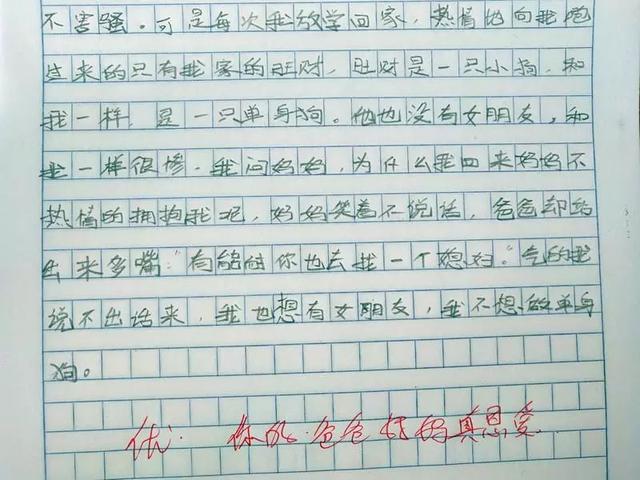 不害骚。可是每次我放学回家，热情地向我跑
过来的只有我家的旺财，旺财是一只小狗，和
我一样，是一只单身狗。他也没有女朋友，和
我一样很惨。我问妈妈，为什么我回来妈妈不
热情的拥抱我呢，妈妈笑着不说话，爸爸却站
出来多嘴“有能耐你也去找一个媳妇”气的我
说不出话来，我也想有女朋友，我不想做单身
狗。
优. 你的爸爸妈妈真恩爱